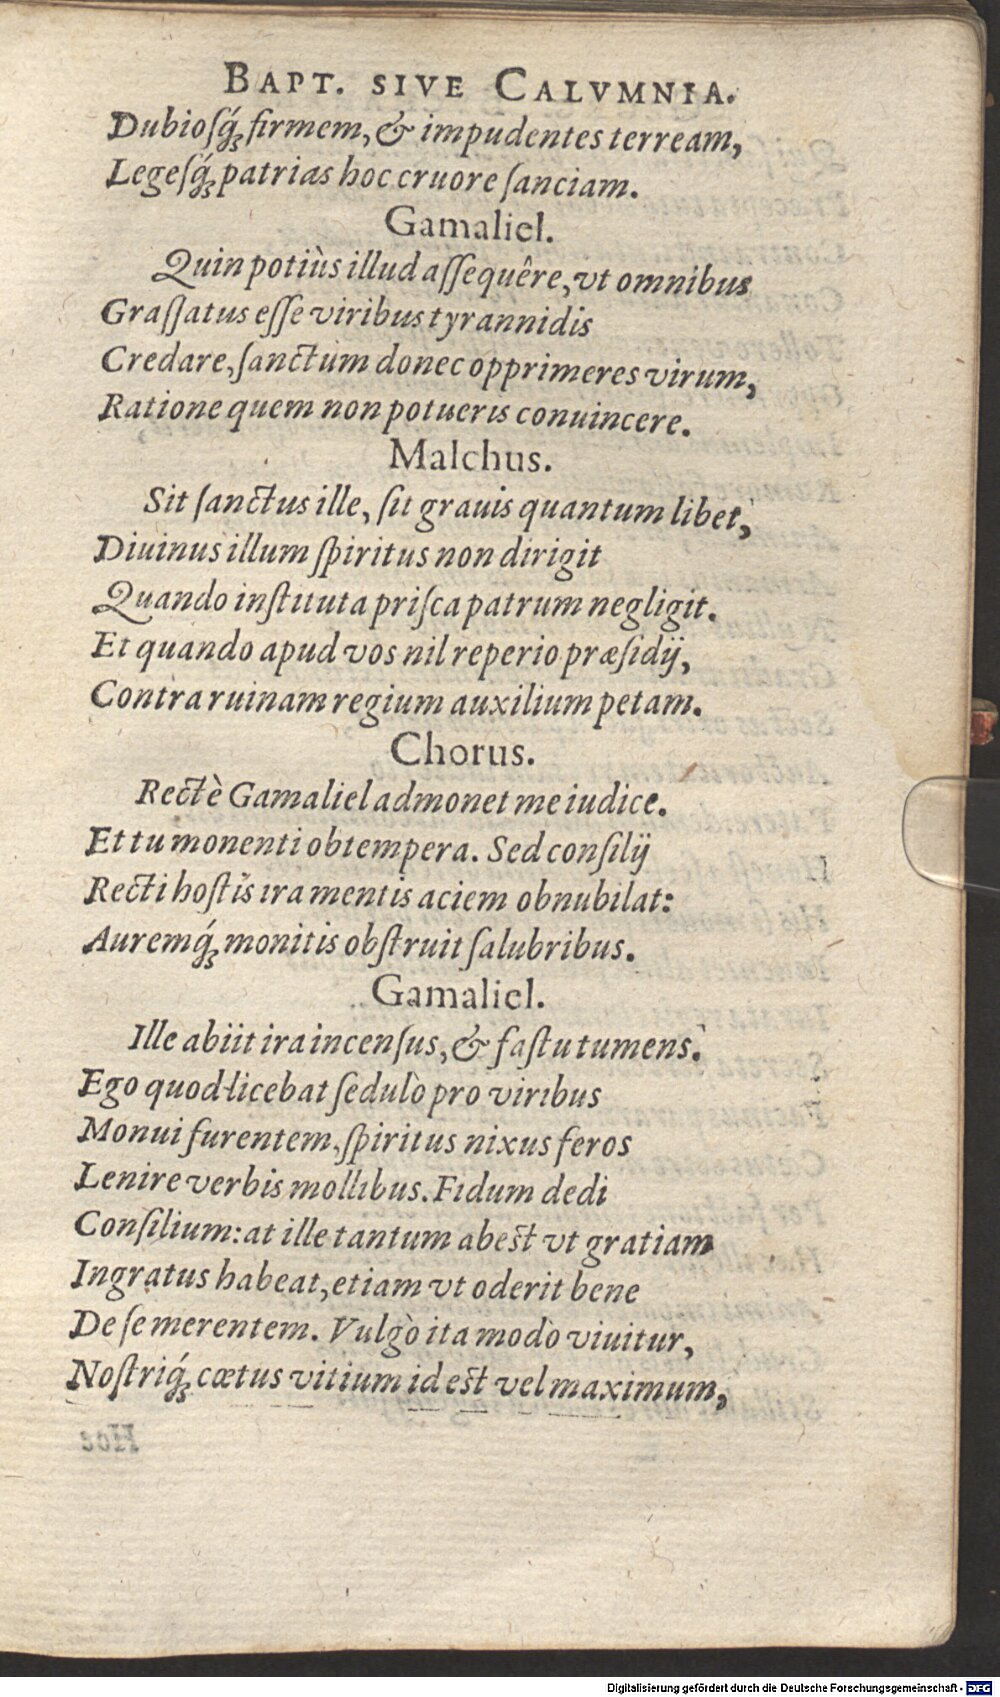 BAPT. SIVE CALVMNIA.
Dubioſq́; firmem, & impudentes terream,
Legeſq́; patrias hoc cruore ſanciam.
Gamaliel.
Quin potiùs illud aſſequêre, vt omnibus
Graſſatus eſſe viribus tyrannidis
Credare, ſanctum donec opprimeres virum,
Ratione quem non potueris conuincere.
Malchus.
Sit ſanctus ille, ſit grauis quantum libet,
Diuinus illum ſpiritus non dirigit
Quando inſtituta priſca patrum negligit.
Et quando apud vos nil reperio præſidij,
Contra ruinam regium auxilium petam.
Chorus.
Rectè Gamaliel admonet me iudice.
Et tu monenti obtempera. Sed conſilij
Recti hoſtis ira mentis aciem obnubilat:
Auremq́; monitis obſtruit ſalubribus.
Gamaliel.
Ille abiit ira incenſus, & faſtu tumens.
Ego quod licebat ſedulò pro viribus
Monui furentem, ſpiritus nixus feros
Lenire verbis mollibus. Fidum dedi
Conſilium: at ille tantum abeſt vt gratiam
Ingratus habeat, etiam vt oderit bene
De ſe merentem. Vulgò ita modò viuitur,
Noſtriq́; cœtus vitium id eſt vel maximum,
Digitalisierung gefördert durch die Deutsche Forschungsgemeinschaft - DFG